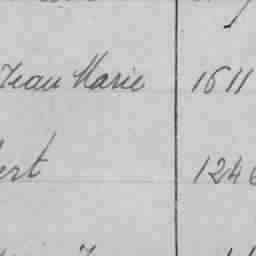 Jean Marie 1611
ert 1246